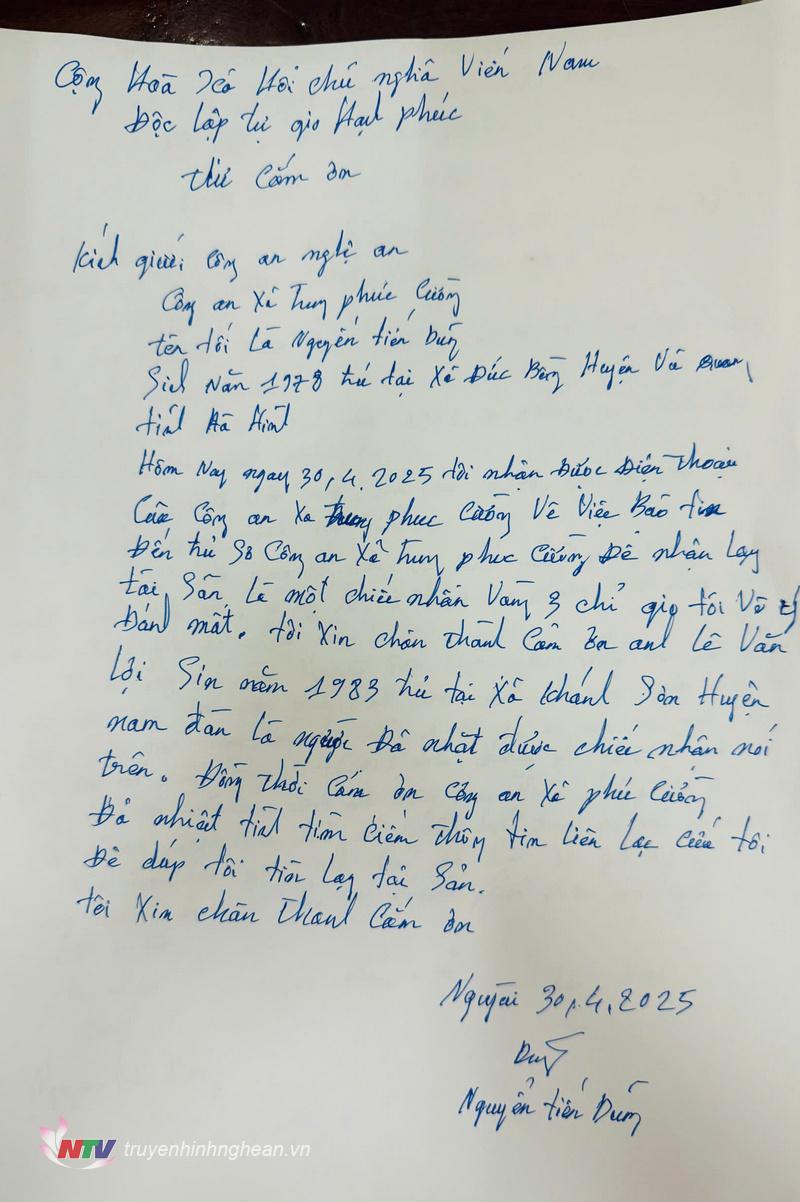 Cộng Hoà Xã Hôi chủ nghiã Viêt Nam
Độc lập tự gio Hạh phúc
thư Cảm ơn
Kích giưới Công an nghệ an
Công an Xã Trung phúc Cường
tên tôi Là Nguyễn tiến Dũng
Sinh Năm 1978 trú tại Xã Đức Bồng Huyện Vũ quang
tỉnh Hà Tĩnh
Hôm Nay ngay 30.4.2025 tôi nhận Được Điện thoại
Của Công an Xa Trung phuc Cường Về Việc Báo tin
Đến trủ Sở Công an Xã Trung phuc Cường Đê nhận Lạy
tài Sản Là một chiếc nhẫn Vàng 3 chỉ gio tôi Vô ý
Đánh mất. tôi Xin chân thành Cảm ơn anh Lê Văn
Lợi Sin năm 1983 trú tại Xã Khánh Sơn Huyện
nam đàn là người Đã nhặt được chiếc nhận nói
trên. Đồng thời Cảm ơn Công an Xã phúc Cường
Đã nhiệt tình tìm kiếm thông tin liên Lạc Của tôi
Đê dúp tôi tìm Lạy tại Sản.
tôi Xin chân thanh Cảm ơn
Ngyài 30.4.2025
Dung
Nguyễn tiến Dũng
NTV truyenhinhnghean.vn